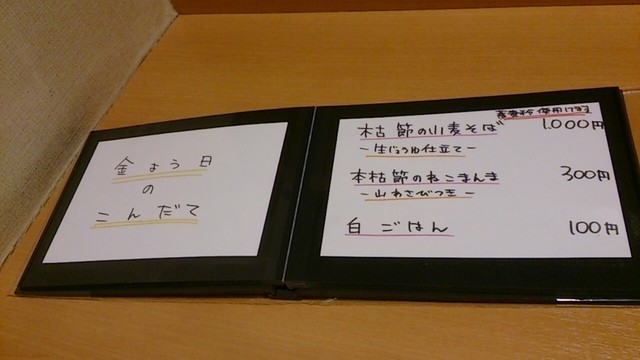 金よう日
の
こんだて
使用してます
本枯節の小麦そば 1.000円
-生じょうゆ仕立て-
本枯節のねこまんま 300円
-山わさびつき-
白ごはん 100円